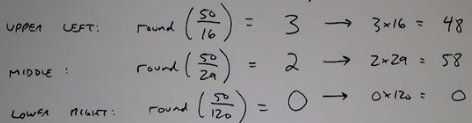 UPPER LEFT: round (50/16) = 3 → 3×16 = 48
MIDDLE: round (50/29) = 2 → 2×29 = 58
LOWER RIGHT: round (50/120) = 0 → 0×120 = 0